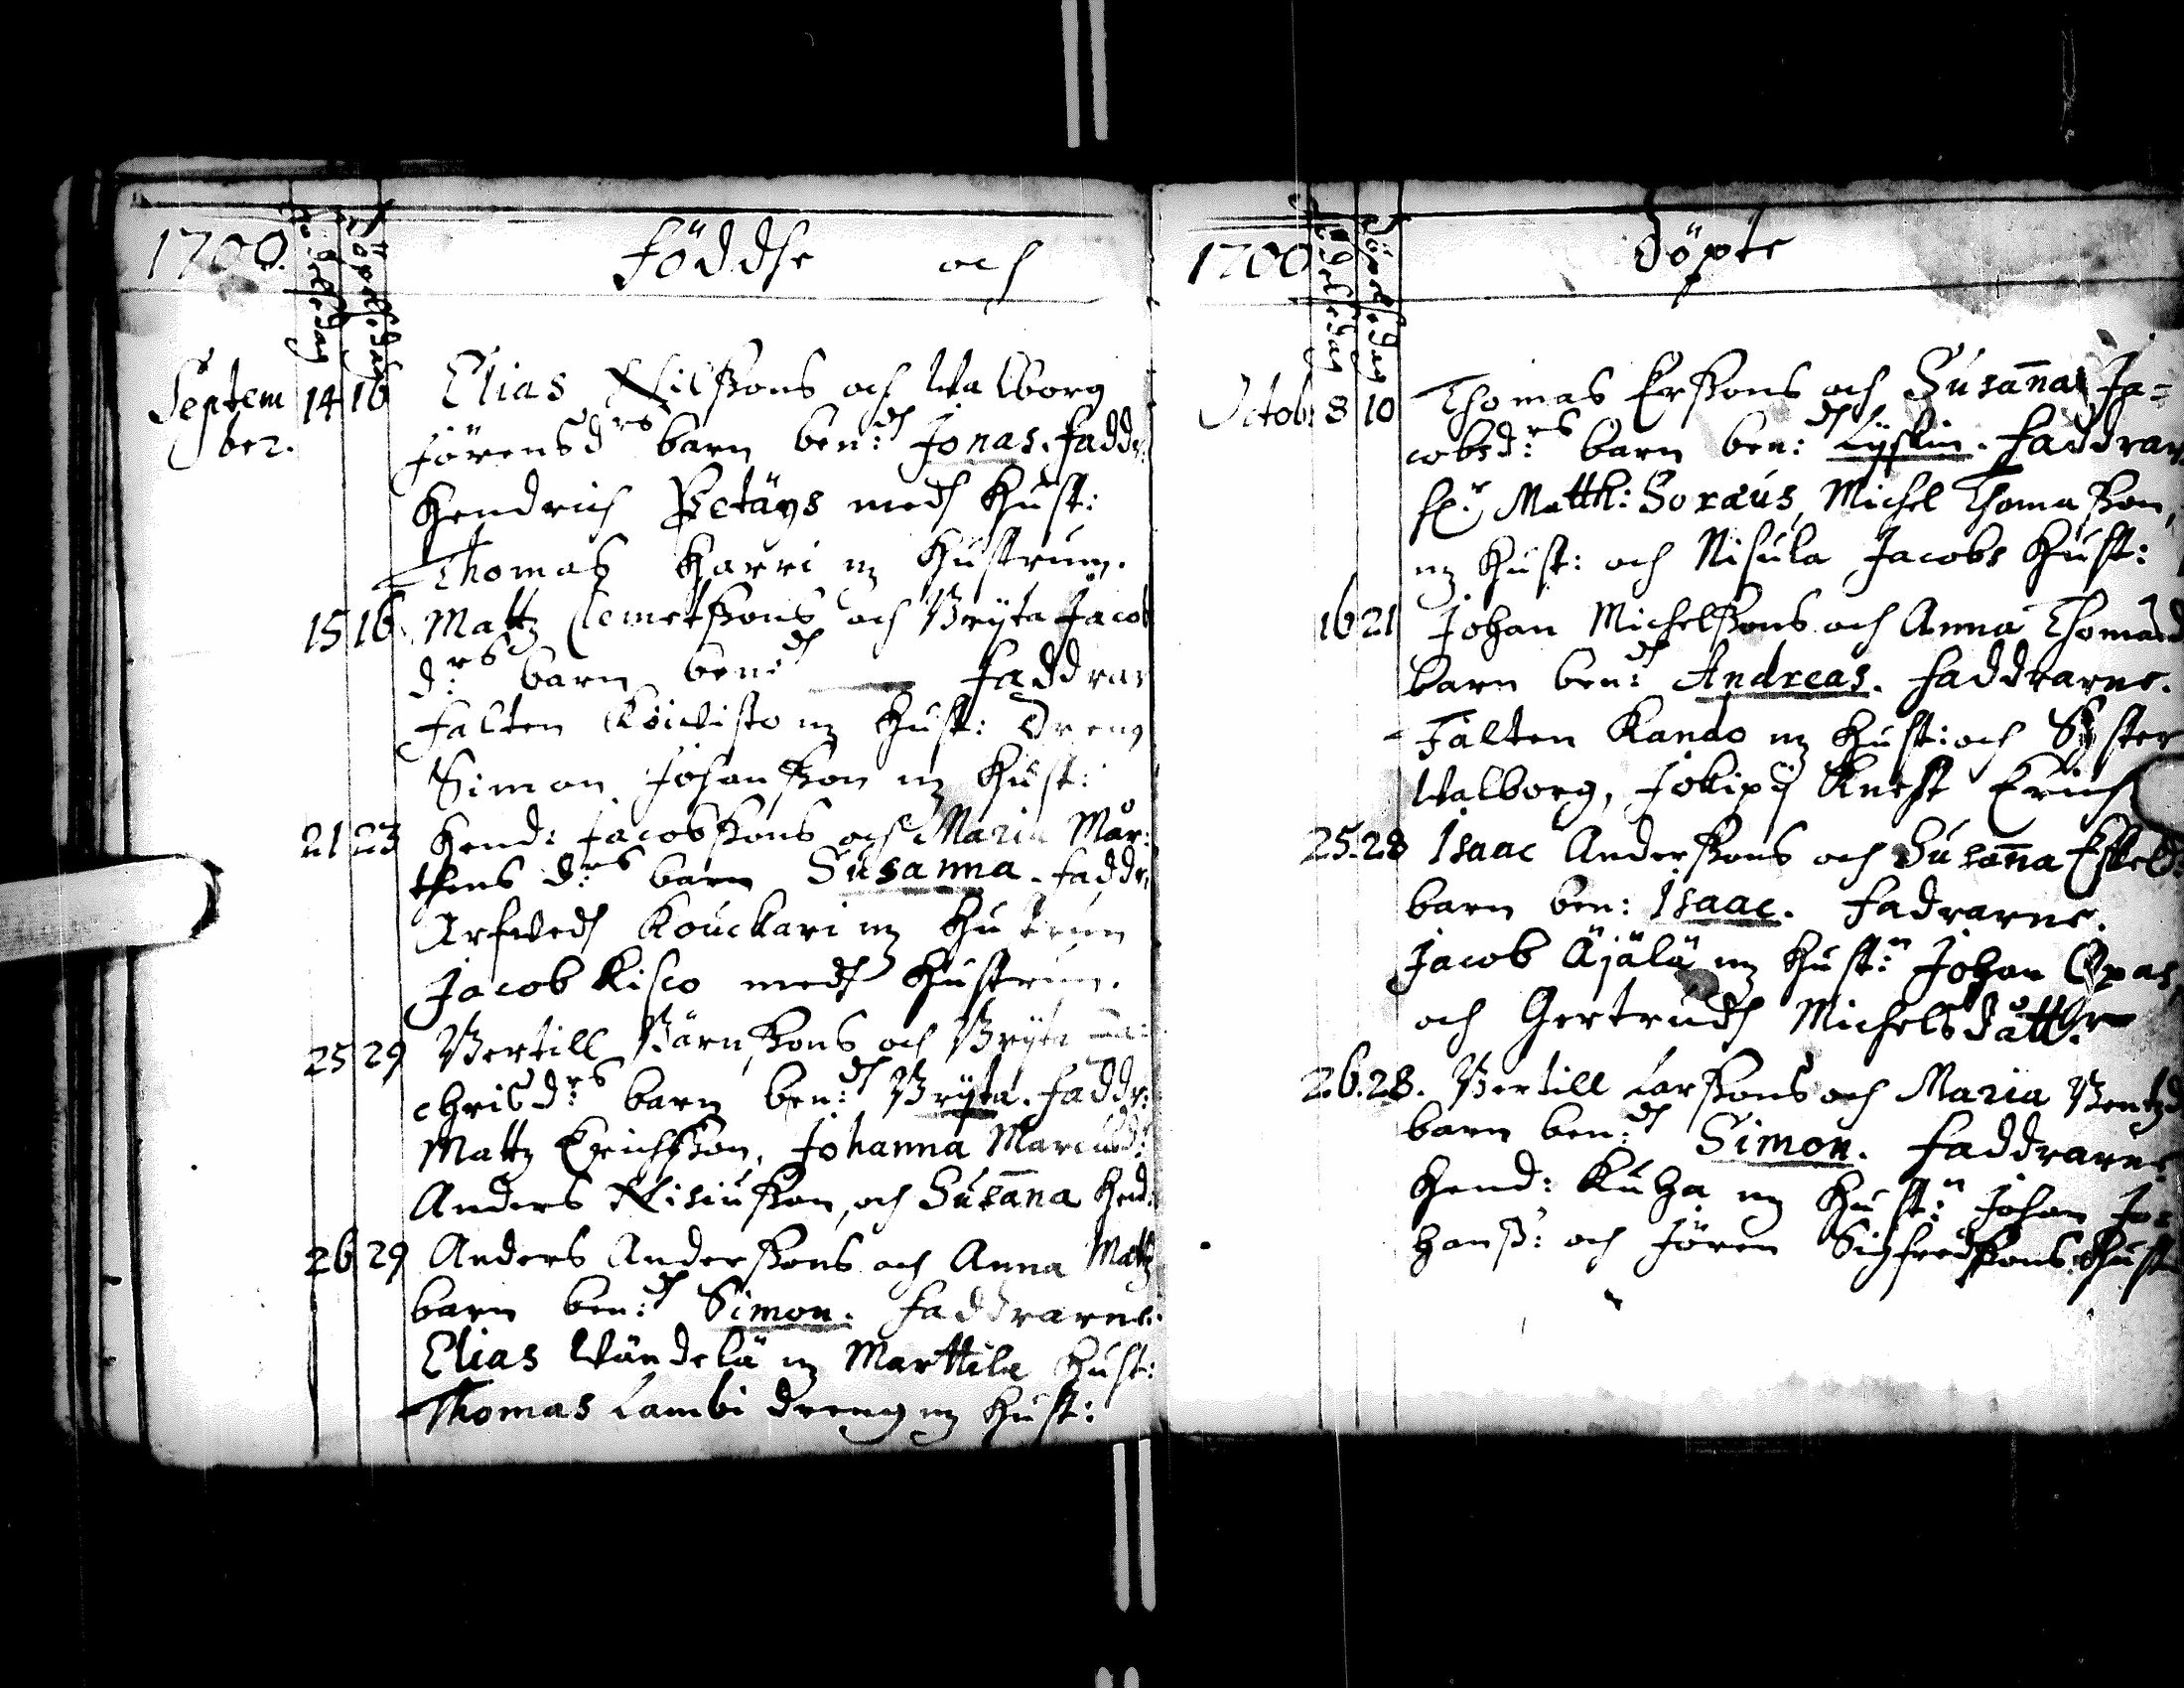 1700. Födelsedag Döpelsedag Föddse och
Septem 14 16 Elias Nilßons och Walborg
ber. Jörensd:rs barn ben:d Jonas. Faddr:
Hendrich Petäys med Hust:
Thomas Harri m Hustrun.
15 16 Mattz Clemetßons och Bryta Jacob
d:rs barn ben:d Faddrar
Falten Koiwisto m Hust: Dreng
Simon Johanßon m Hust:
21 23 Hend: Jacobßons och Maria Mår:
thens d:rs barn Susanna. Faddr:
Arfwed Kouckari m Hustrun
Jacob Kisco med Hustrun.
25 29 Bertill Börnßons och Bryta
chrisd:rs barn ben:d Bryta. Faddr:
Mattz Erichßon, Johanna Marcusd:
Anders Nisiußon, och Susana Hend:
26 29 Anders Anderßons och Anna Mattz
barn ben:d Simon. Faddrarne:
Elias Wändelä m Marttila Hust:
Thomas Lambi dreng m Hust:
1700 Födelsedag Döpelsedag Döpte
Octob: 8 10 Thomas Erßons och Susana Ja=
cobsd:rs barn ben:d Lyskin. Faddrar
H:r Matth: Soræus, Michel Thomaßon,
m Hust: och Nisula Jacobs Hust:
16 21 Johan Michelßons och Anna Thomasd
barn ben:d Andreas. Faddrarne.
Falten Kando m Hust: och Syster
Walborg, Jokipij Knest Erich
25. 28 Isaac Anderßons och Susana Eskels:
barn ben: Isaac. Fadrarne.
Jacob Äjälä m Hust:n Johan Opas,
och Gertrud Michelsdåtter
26. 28. Bertill Larßons och Maria Bentzd
barn ben:d Simon. Faddrarne
Hend: Kuha m Hust:n Johan Jo=
hanß: och Jören Sigfredßons Hust